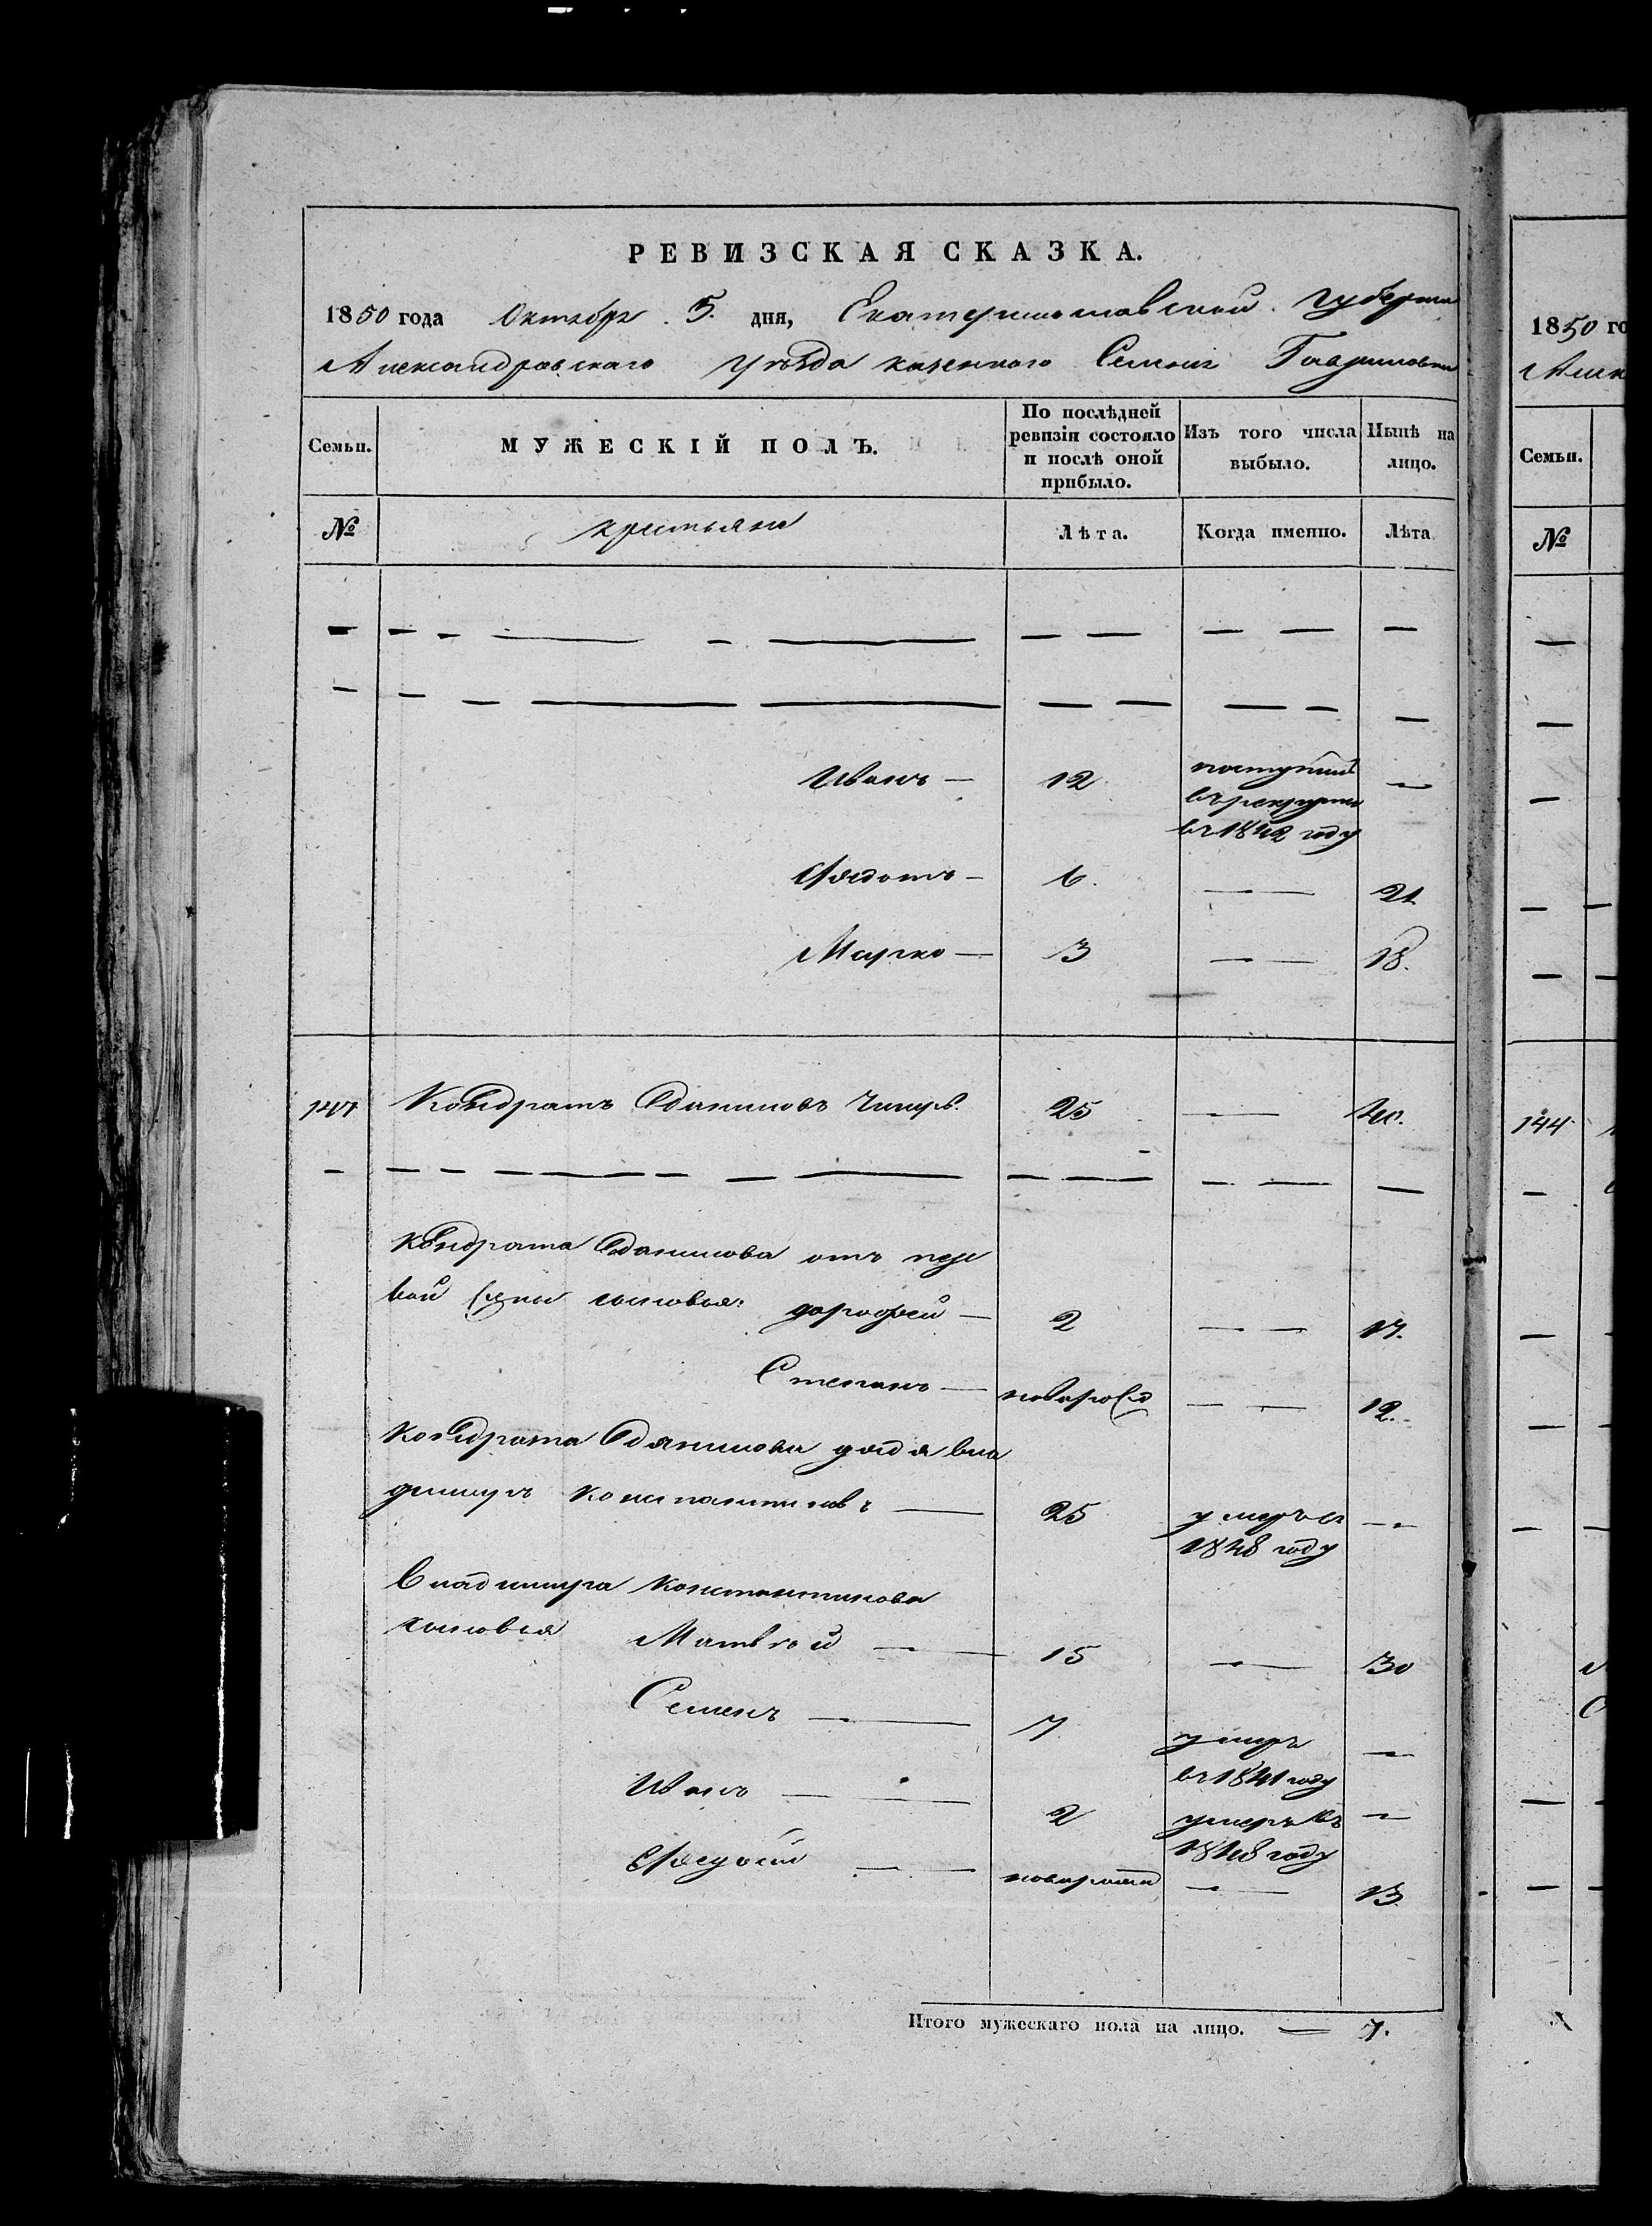 РЕВИЗСКАЯ СКАЗКА.
1850 года Октября 5. дня, Екатеринославской Губерніи
Александровскаго уѣзда казеннаго Селенія Гавриловки
Семьи. МУЖЕСКІЙ ПОЛЪ. По послѣдней ревизіи состояло и послѣ оной прибыло. Изъ того числа выбыло. Нынѣ на лицо.
№ крестьяне Лѣта. Когда именно. Лѣта
Иванъ — 12 поступилъ —
въ рекруты
въ 1842 году
Федотъ — 6. — 21
Марко — 3 — 18.
Кондратъ Даниловъ 25 — 40.
Кондрата Данилова отъ пер
вой жены сыновья: Дорофей — 2 — 17.
Степанъ — новорож — 12.
Кондрата Данилова дядя Вла
димиръ Константиновъ — 25 умеръ въ —
1848 году
Владимира Константинова
сыновья Матвѣй — 15 — 30
Семенъ — 7 умеръ —
въ 1841 году
Иванъ — 2 умеръ въ —
1848 году
новорож — 13
Итого мужескаго пола на лицо. — 7.
1850 го
Алек
Семьи.
№
144